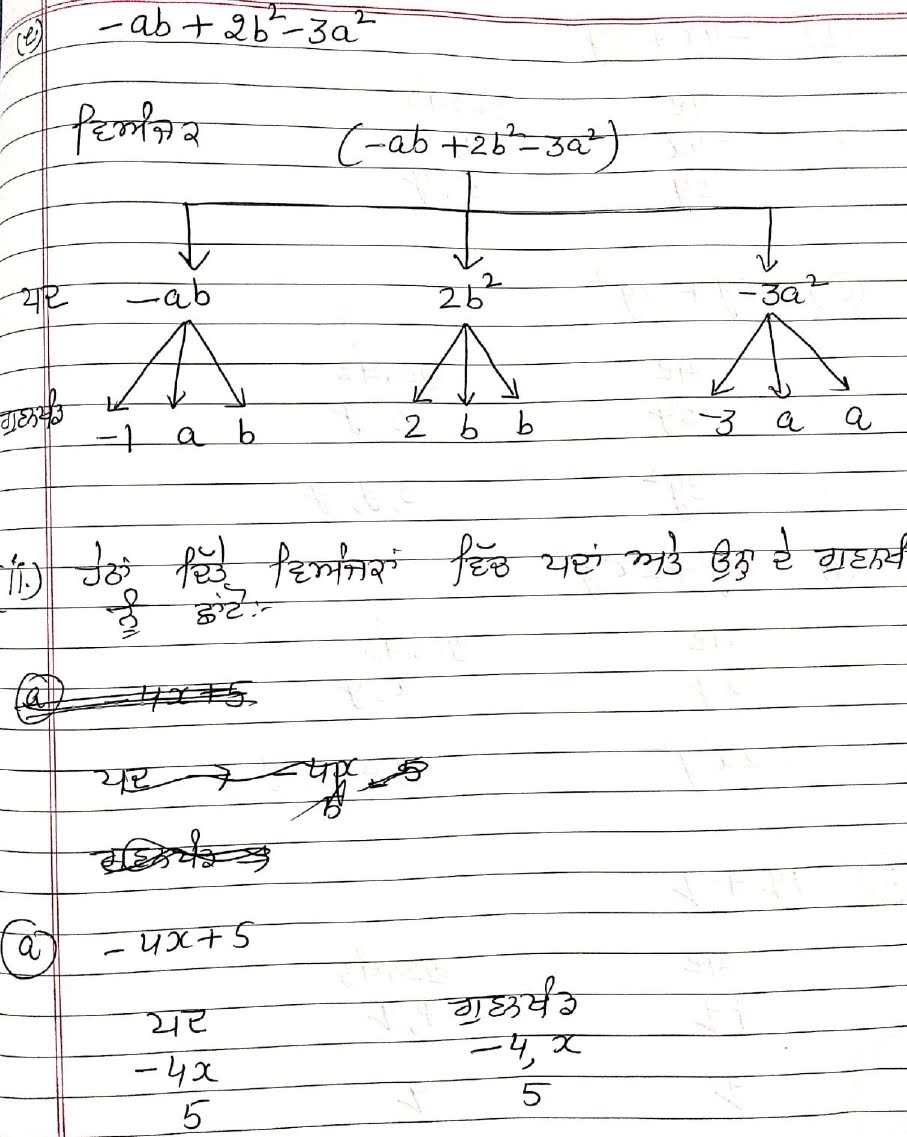 (e) -ab + 2b² - 3a²
ਵਿਅੰਜਕ (-ab + 2b² - 3a²)
ਪਦ -ab 2b² -3a²
ਗੁਣਨਖੰਡ -1 a b 2 b b -3 a a
ii.) ਹੇਠਾਂ ਦਿੱਤੇ ਵਿਅੰਜਕਾਂ ਵਿੱਚ ਪਦਾਂ ਅਤੇ ਉਨ੍ਹ ਦੇ
ਨੂੰ ਛਾਂਟੋ:-
(a) -4x+5
ਪਦ → -4x, 5
ਗੁਣਨਖੰਡ →
(a) -4x+5
ਪਦ ਗੁਣਨਖੰਡ
-4x -4, x
5 5